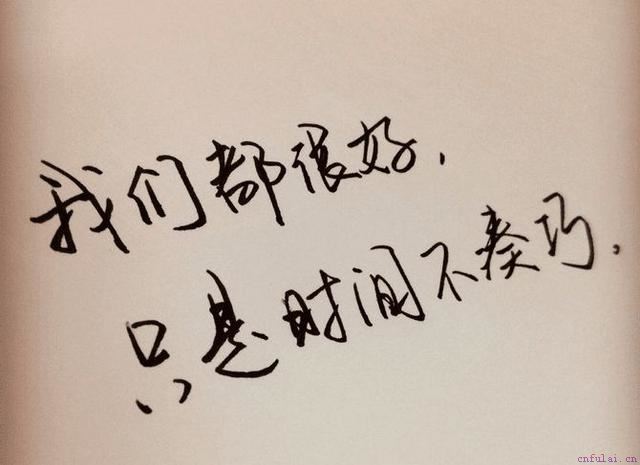 我们都很好.
只是时间不凑巧.
cnfulai.cn